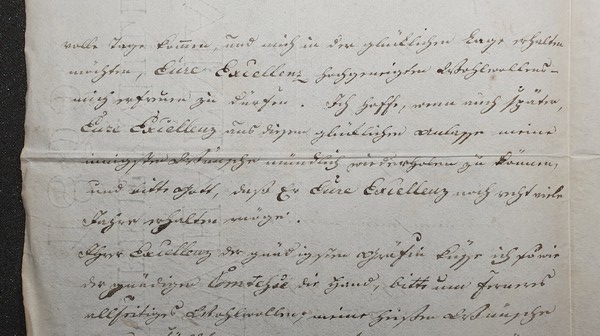 volle Tage kommen, und mich in der glücklichen Lage erhalten
möchten, Eure Excellenz hochgeneigten Wohlwollens
mich erfreuen zu dürfen. Ich hoffe, wenn auch später,
Eure Excellenz aus diesem glücklichen Anlasse meine
innigsten Wünsche mündlich wiederholen zu können,
und bitte Gott, daß Er Eure Excellenz noch recht viele
Jahre erhalten möge.
Ihrer Excellenz der gnädigsten Gräfin küsse ich sowie
der gnädigen Comtesse die Hand, bitte um ferneres
allseitiges Wohlwollen, meine heißen Wünsche